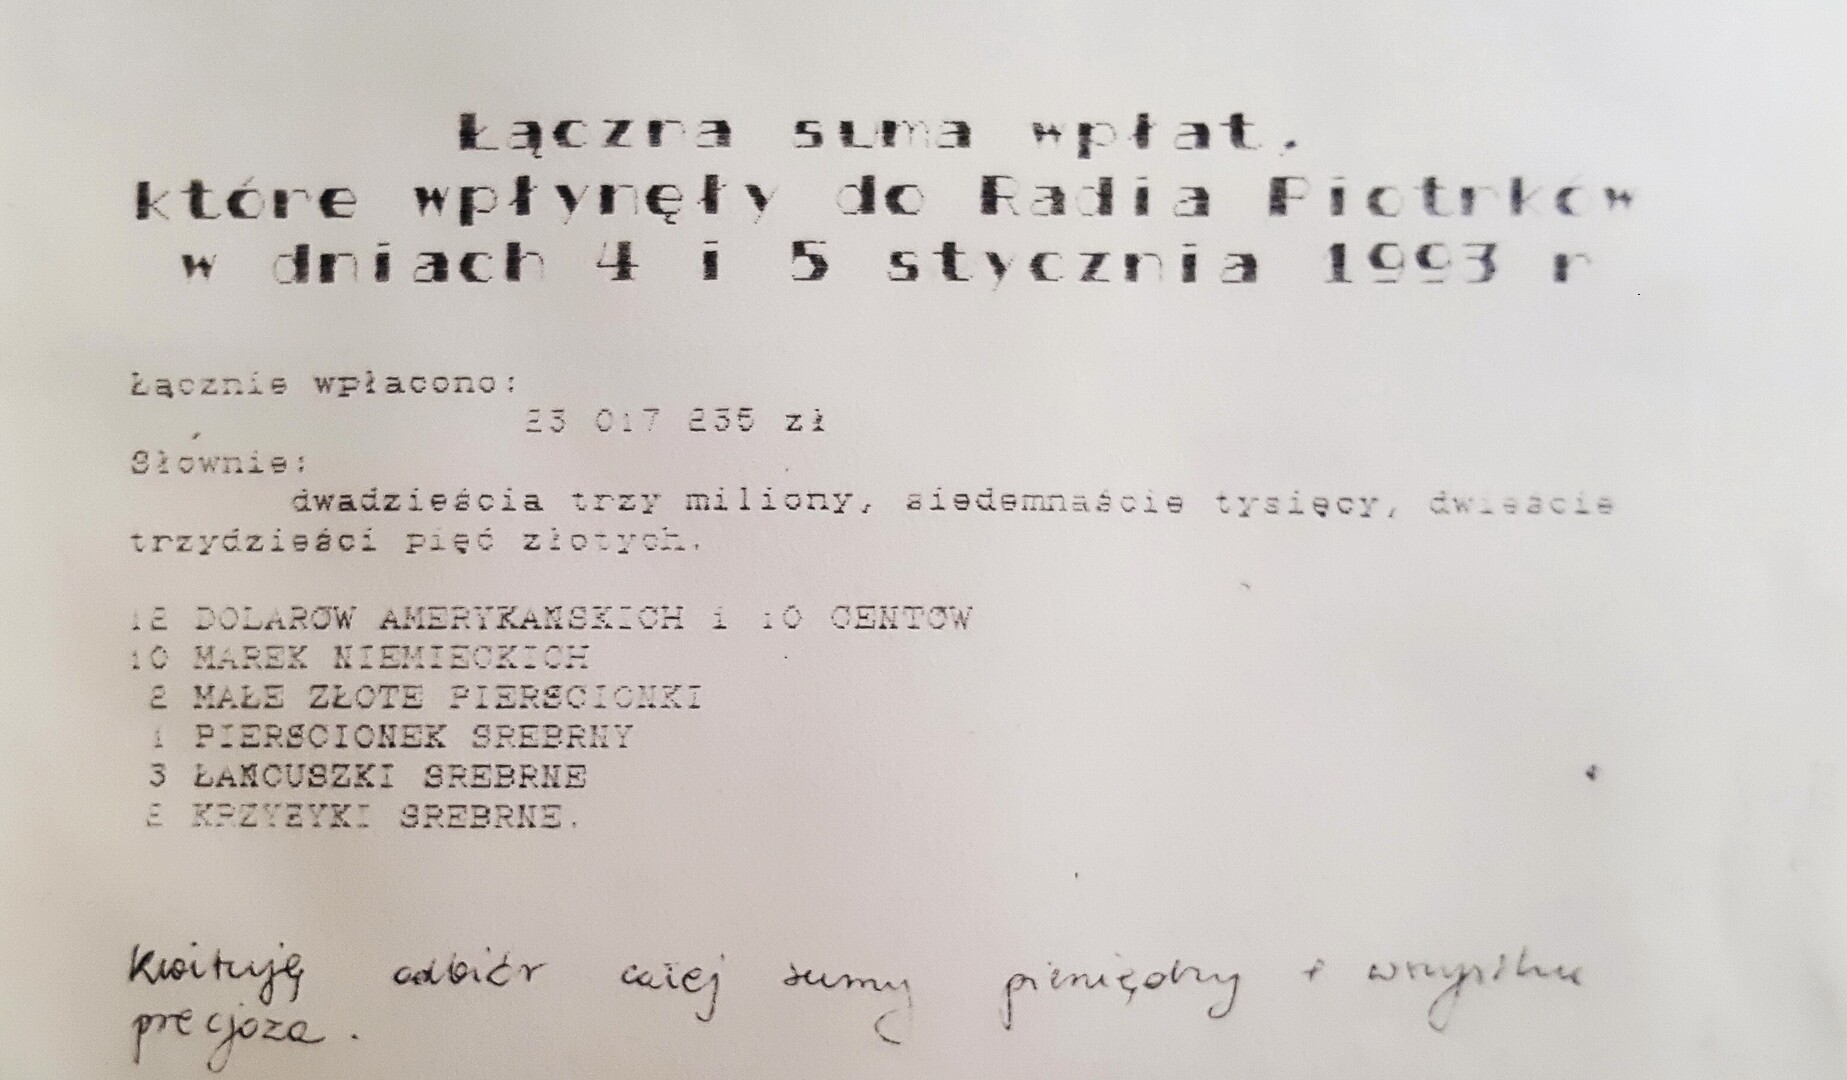 Łączna suma wpłat,
które wpłynęły do Radia Piotrków
w dniach 4 i 5 stycznia 1993 r
Łącznie wpłacono:
23 017 235 zł
Słównie:
dwadzieścia trzy miliony, siedemnaście tysięcy, dwieście
trzydzieści pięć złotych.
12 DOLARÓW AMERYKAŃSKICH i 10 CENTÓW
10 MAREK NIEMIECKICH
2 MAŁE ZŁOTE PIERŚCIONKI
1 PIERŚCIONEK SREBRNY
3 ŁAŃCUSZKI SREBRNE
2 KRZYŻYKI SREBRNE.
Kwituję odbiór całej sumy pieniędzy i wszystkie
precjoza.